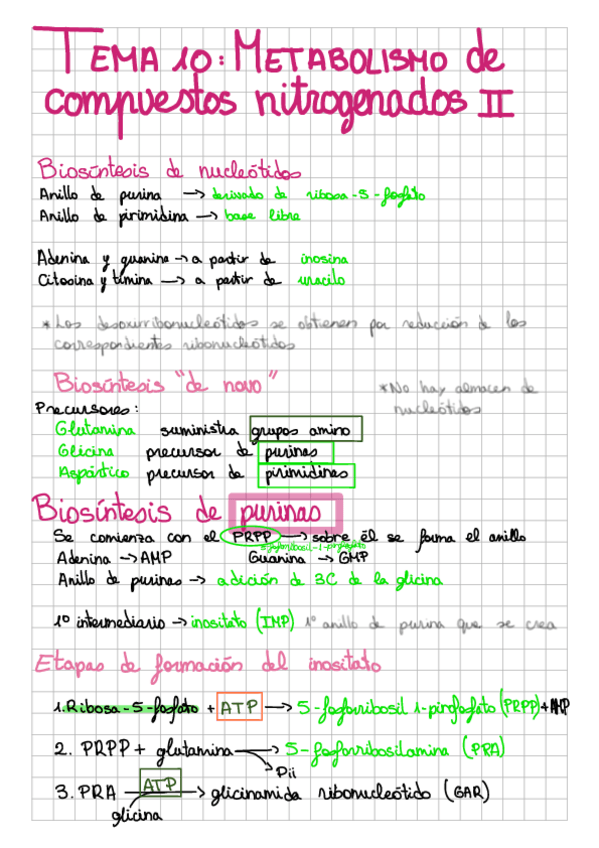 TEMA 10: METABOLISMO de
compuestos nitrogenados II
Biosíntesis de nucleótidos
Anillo de purina → derivado de ribosa-5-fosfato
Anillo de pirimidina → base libre
Adenina y guanina → a partir de inosina
Citosina y timina → a partir de uracilo
*Los desoxirribonucleótidos se obtienen por reducción de los
correspondientes ribonucleótidos
Biosíntesis "de novo"
*No hay almacen de
nucleótidos
Precursores:
Glutamina suministra grupos amino
Glicina precursor de purinas
Aspártico precursor de pirimidinas
Biosíntesis de purinas
Se comienza con el PRPP → sobre él se forma el anillo
5-fosforribosil-1-pirofosfato
Adenina → AMP Guanina → GMP
Anillo de purinas → adición de 3C de la glicina
1º intermediario → inositato (IMP) 1º anillo de purina que se crea
Etapas de formación del inositato
1. Ribosa-5-fosfato + ATP → 5-fosforribosil 1-pirofosfato (PRPP) + AMP
2. PRPP + glutamina → 5-fosforribosilamina (PRA)
Pii
3. PRA ATP → glicinamida ribonucleótido (GAR)
glicina